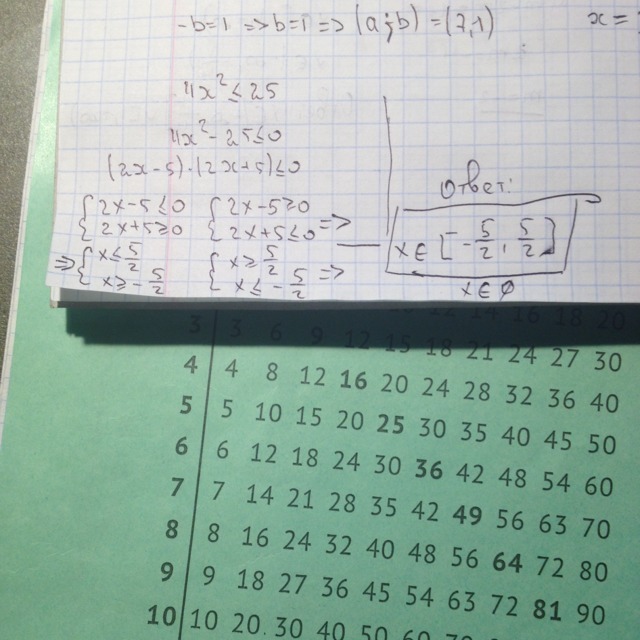 -b=1 => b=1 => (a;b) = (7,1)
x =
4x² ≤ 25
4x² - 25 ≤ 0
(2x-5)·(2x+5) ≤ 0
{ 2x-5 ≤ 0 { 2x-5 ≥ 0
{ 2x+5 ≥ 0 { 2x+5 ≤ 0 =>
=> { x ≤ 5/2 { x ≥ 5/2
{ x ≥ -5/2 { x ≤ -5/2 =>
Ответ:
x ∈ [-5/2; 5/2]
x ∈ ∅
3 3 6 9 12 15 18 21 24 27 30
4 4 8 12 16 20 24 28 32 36 40
5 5 10 15 20 25 30 35 40 45 50
6 6 12 18 24 30 36 42 48 54 60
7 7 14 21 28 35 42 49 56 63 70
8 8 16 24 32 40 48 56 64 72 80
9 9 18 27 36 45 54 63 72 81 90
10 10 20 30 40 50 60